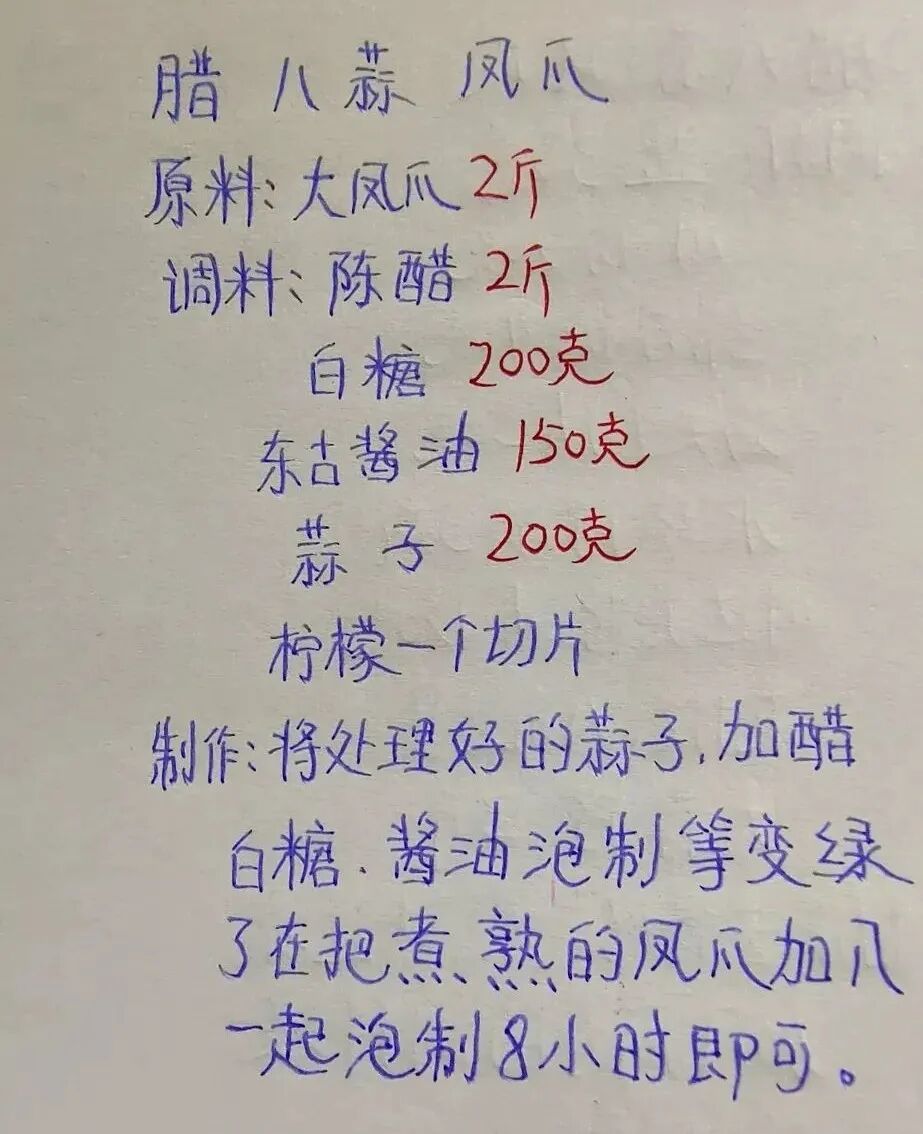 腊八蒜 凤爪
原料:大凤爪 2斤
调料:陈醋 2斤
白糖 200克
东古酱油 150克
蒜子 200克
柠檬一个切片
制作:将处理好的蒜子,加醋
白糖.酱油泡制等变绿
了在把煮熟的凤爪加入
一起泡制8小时即可。